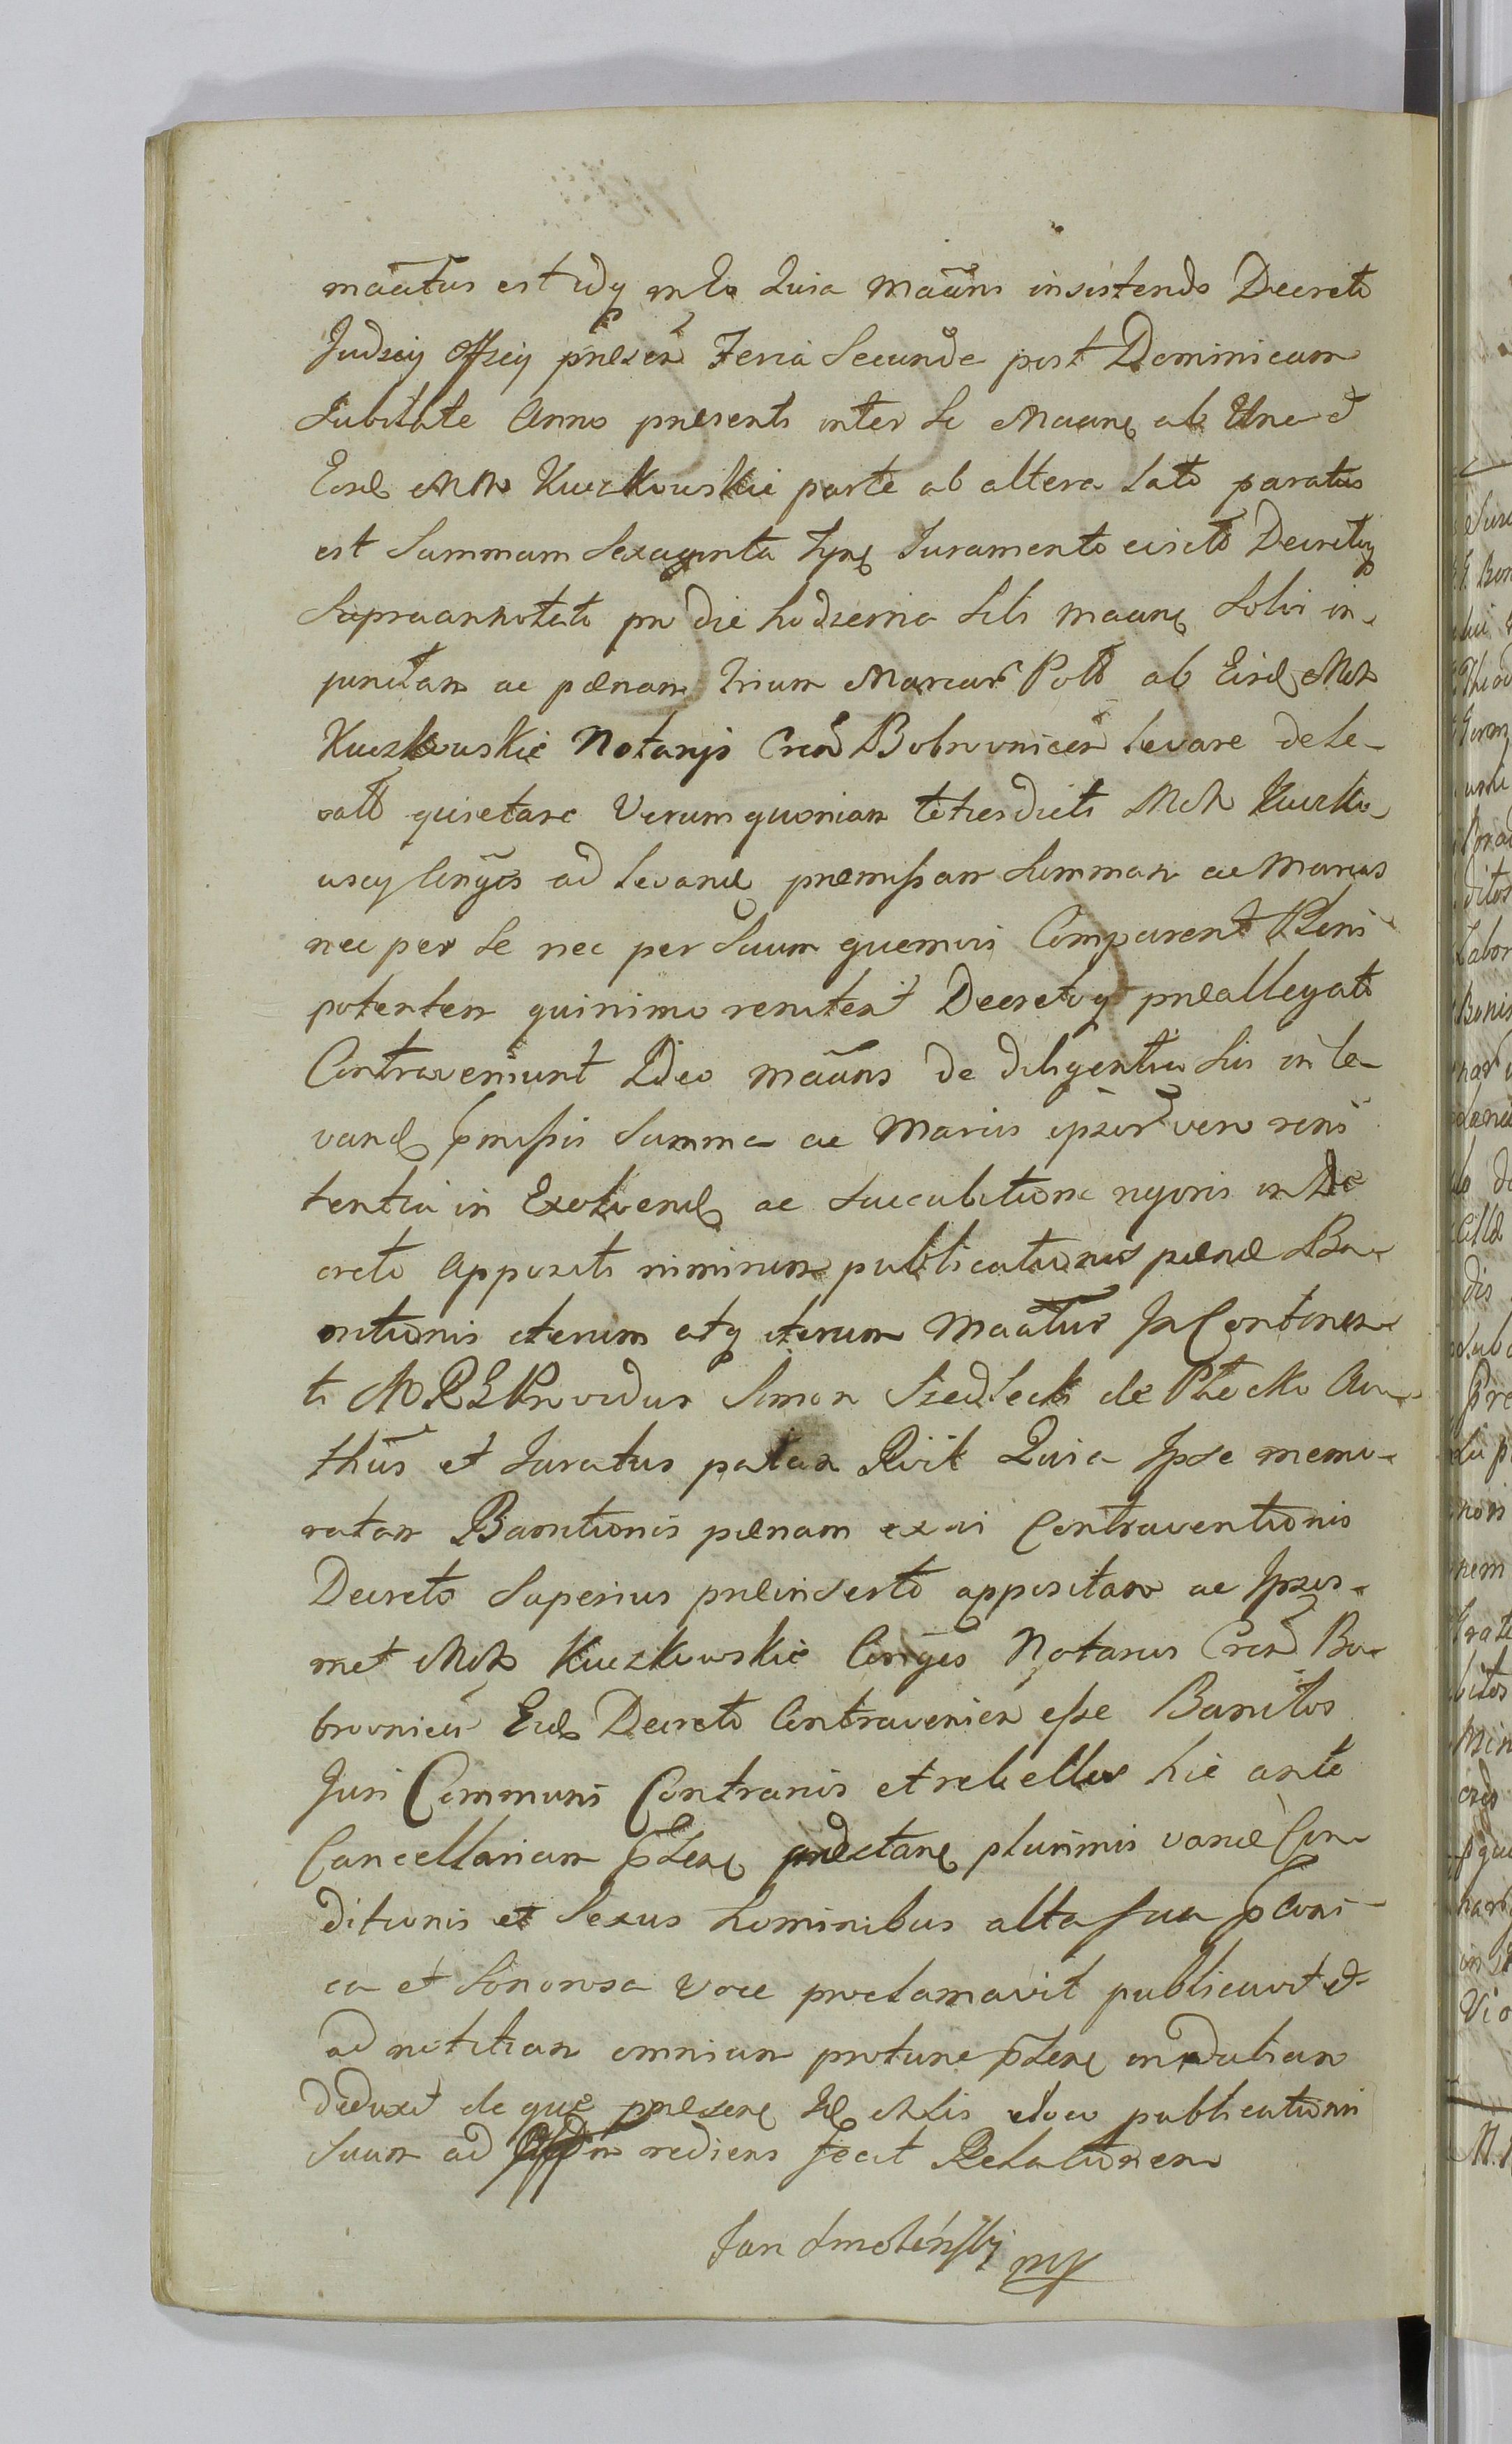 maãtus est idq in Eo Quia maãns insistendo Decreto
Judicij Offcij præsen Feria Secunda post Dominicam
Jubilate Anno præsenti inter se Maanę ab Una et
Eosd MM Kuczkowskie parte ab altera Lato paratus
est Summam Sexaginta Tynf Juramento eiscto Decretoq
Supraannotato pro die hodierna sibi maanę Solvi in
junctam ac pænam trium Marcar Poll ab Eisd MM
Kuczkowskie Notarijs Cren Bobrovnicen levare dele
vatis quietare Verum quoniam toties dicti MM Kuczko
wscy Conjges ad levand præmissam Summam ac Marcas
nec per se nec per Suum quemvis Comparent Pleni
potenten quinimo renitent Decretoq præallegato
Contraveniunt Ideo maãns de diligentia sui in le
vand præmissis Summa ac Marcis ipsor vero reni
tentia in Exolvend ac succubitione rigoris in De
creto Appositi nimirum publicationis pænæ Ba
nitionis iterum atq iterum Maãtus In Continen
ti M R G Providus Simon Siedlecki de Plocko Au
thūs et Juratus palam Rvit Quia Ipse memo
ratam Banitionis pænam ex vi Contraventionis
Decreto Superius præinserto appositam ac Ipsos
met MM Kuczkowskie Conjges Notarios Cren Bo
brovnicen Eid Decreto Contravenien esse Banitos
Juri Communi Contrarios et rebelles hic ante
Cancellariam præsen præstanę plurimis variæ Con
ditionis et Sexus hominibus alta sua præconi
ca et Sonorosa Voce proclamavit publicavit et
ad notitiam omnium protunc præsen indubiam
deduxit de qua præsenę sis eloco publicationi
Suum ad Offm rediens fecit Relationem
Jan Smoliński mp